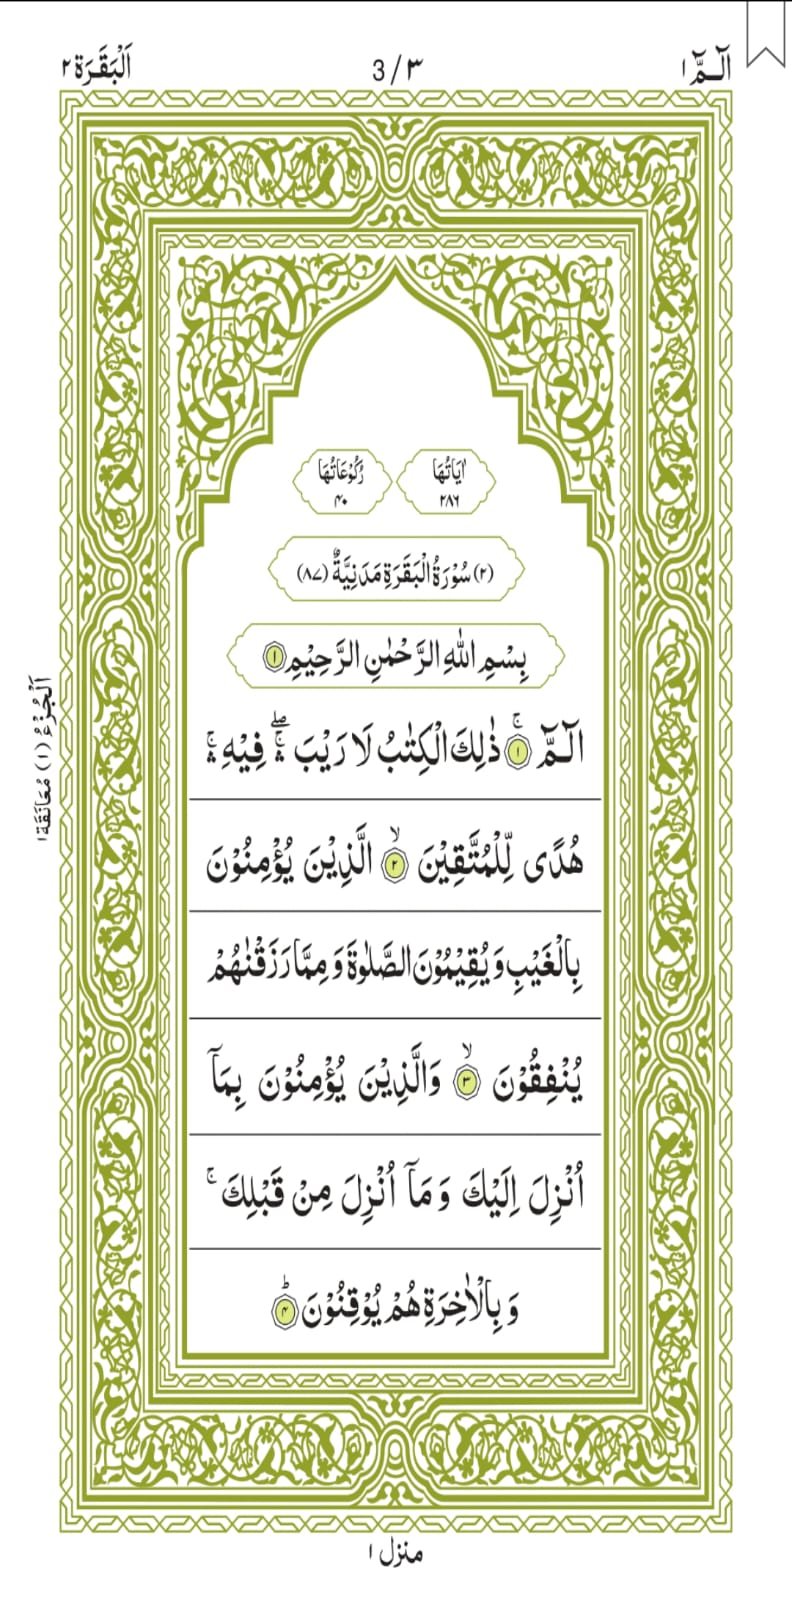 الٓـمّٓ ١
3/٣
اَلْبَقَرَة ٢
اٰيَاتُهَا
٢٨٦
رُكُوْعَاتُهَا
۴۰
(٢) سُوْرَةُ الْبَقَرَةِ مَدَنِيَّةٌ (٨٧)
بِسْمِ اللّٰهِ الرَّحْمٰنِ الرَّحِيْمِ ١
الٓـمّٓ ۚ ١ ذٰلِكَ الْكِتٰبُ لَا رَيْبَ ۛۖ فِيْهِ ۛۚ
هُدًى لِّلْمُتَّقِيْنَ ۙ ٢ الَّذِيْنَ يُؤْمِنُوْنَ
بِالْغَيْبِ وَيُقِيْمُوْنَ الصَّلٰوةَ وَمِمَّا رَزَقْنٰهُمْ
يُنْفِقُوْنَ ۙ ٣ وَالَّذِيْنَ يُؤْمِنُوْنَ بِمَآ
اُنْزِلَ اِلَيْكَ وَمَآ اُنْزِلَ مِنْ قَبْلِكَ ۚ
وَبِالْاٰخِرَةِ هُمْ يُوْقِنُوْنَ ؕ ۴
اَلْجُزْءُ (١) مُعَانَقَة ١
منزل ١